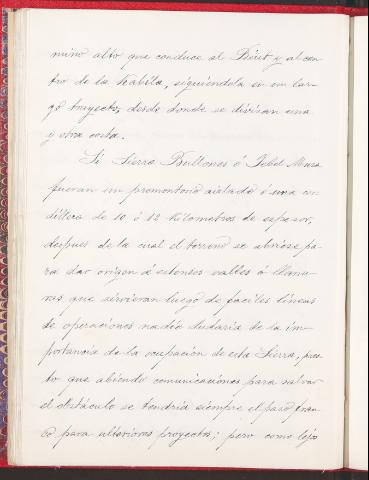 mino alto que conduce al Biut y al cen-
tro de la Kabila, siguiéndola en un lar-
go trayecto, desde donde se divisan una
y otra costa.
Si Sierra Bullones ó Jebel Musa
fueran un promontorio aislado ó una cor-
dillera de 10 ó 12 kilometros de espesor,
despues de la cual el terreno se abriese pa-
ra dar origen á estensos valles ó llanu-
ras que sirvieran luego de faciles lineas
de operaciones nadie dudaria de la im-
portancia de la ocupación de esta Sierra, pues-
to que abiendo comunicaciones para salvar
el obstáculo se tendria siempre el paso fran-
co para ulteriores proyectos; pero como lejos